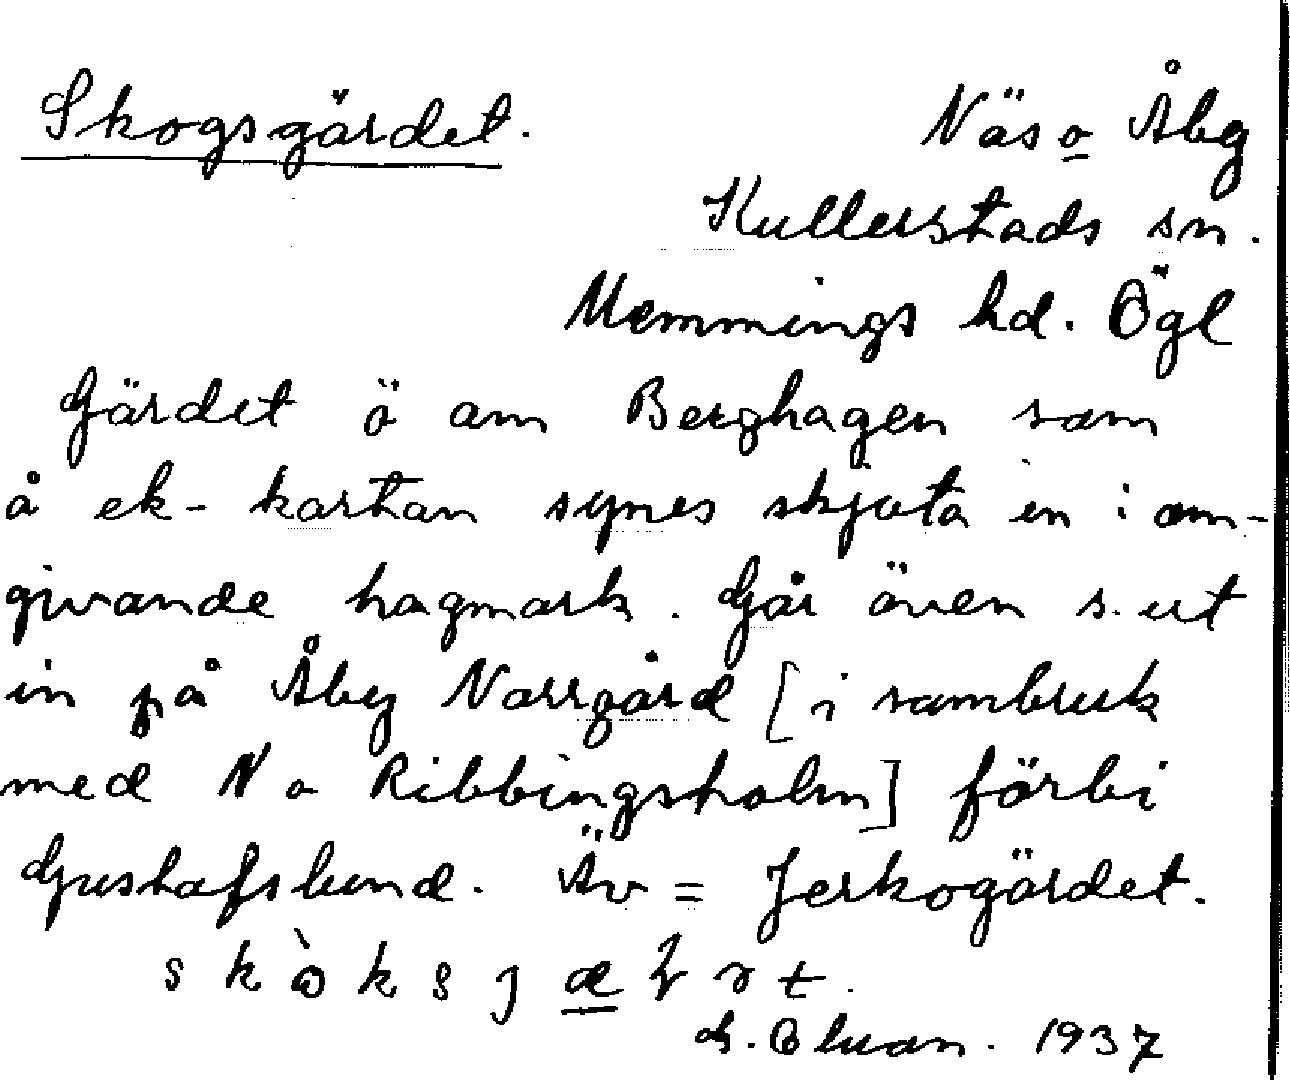 Skogsgärdet. Näs o Åby
Kullerstads sn.
Memmings hd. Ögl
Gärdet ö om Berghagen som
å ek-kartan synes skjuta in i om-
givande hagmark. Går även s. ut
in på Åby Norrgård [i sambruk
med N o Ribbingsholm] förbi
Gustafslund. Äv = Jerkogärdet.
1937